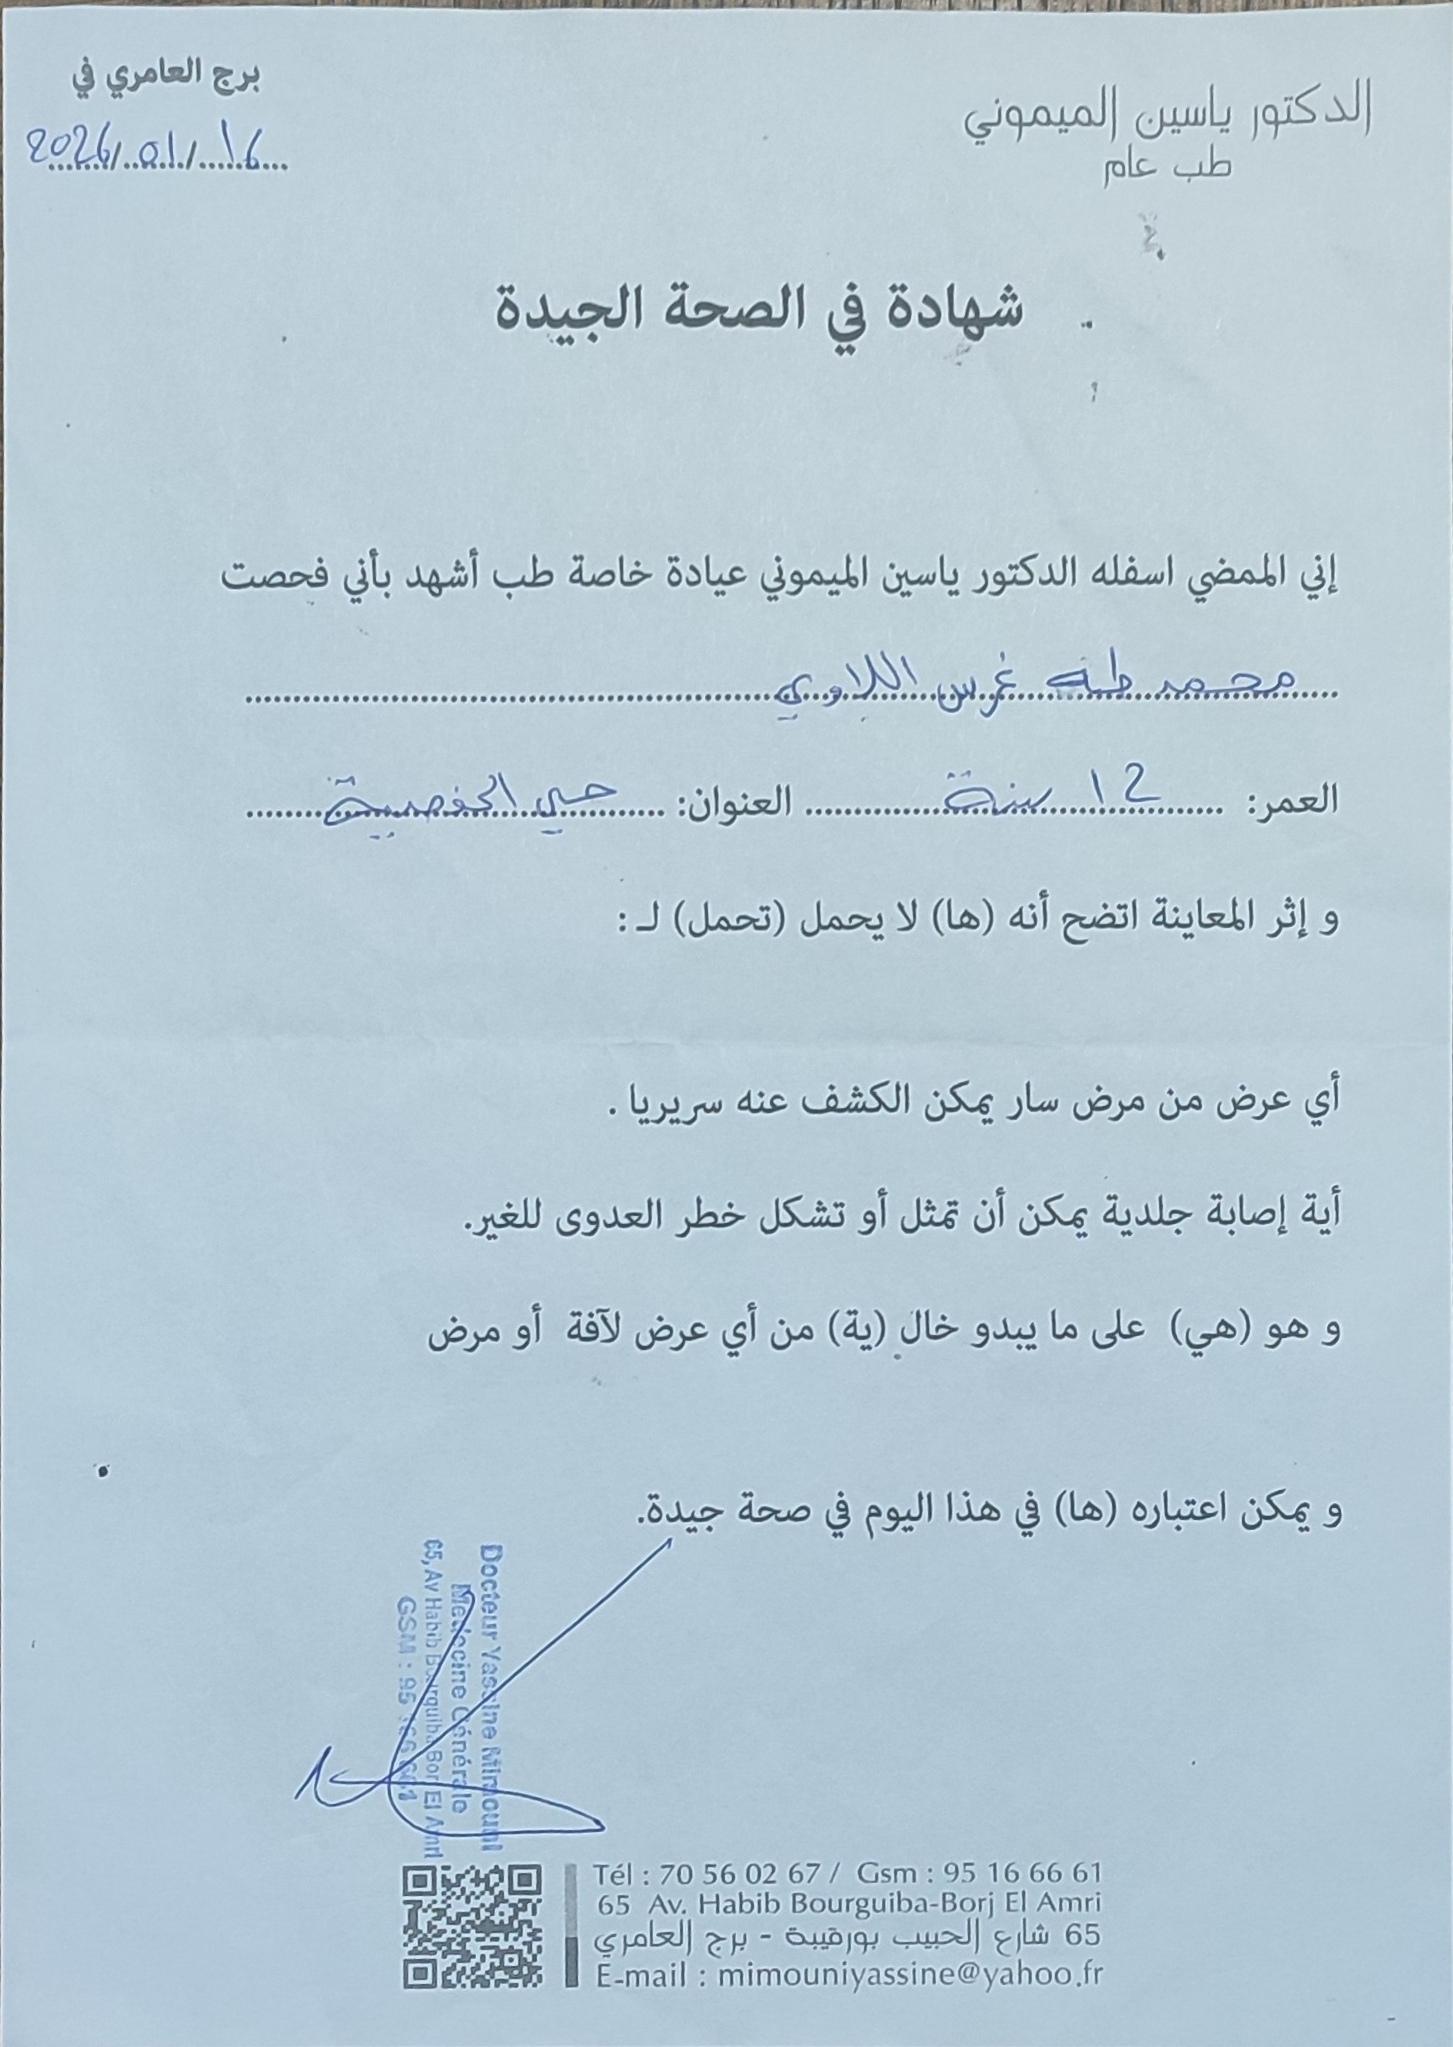 الدكتور ياسين الميموني
طب عام
برج العامري في
16/01/2026
شهادة في الصحة الجيدة
إني الممضي اسفله الدكتور ياسين الميموني عيادة خاصة طب أشهد بأني فحصت
محمد طه غرس اللاوي
العمر: 12 سنة العنوان: حي الحفصية
و إثر المعاينة اتضح أنه (ها) لا يحمل (تحمل) لـ :
أي عرض من مرض سار يمكن الكشف عنه سريريا .
أية إصابة جلدية يمكن أن تمثل أو تشكل خطر العدوى للغير.
و هو (هي) على ما يبدو خال (ية) من أي عرض لآفة أو مرض
و يمكن اعتباره (ها) في هذا اليوم في صحة جيدة.
Docteur Yassine Mimouni
Médecine Générale
65, Av Habib Bourguiba Borj El Amri
GSM : 95 166 661
Tél : 70 56 02 67 / Gsm : 95 16 66 61
65 Av. Habib Bourguiba-Borj El Amri
65 شارع الحبيب بورقيبة - برج العامري
E-mail : mimouniyassine@yahoo.fr